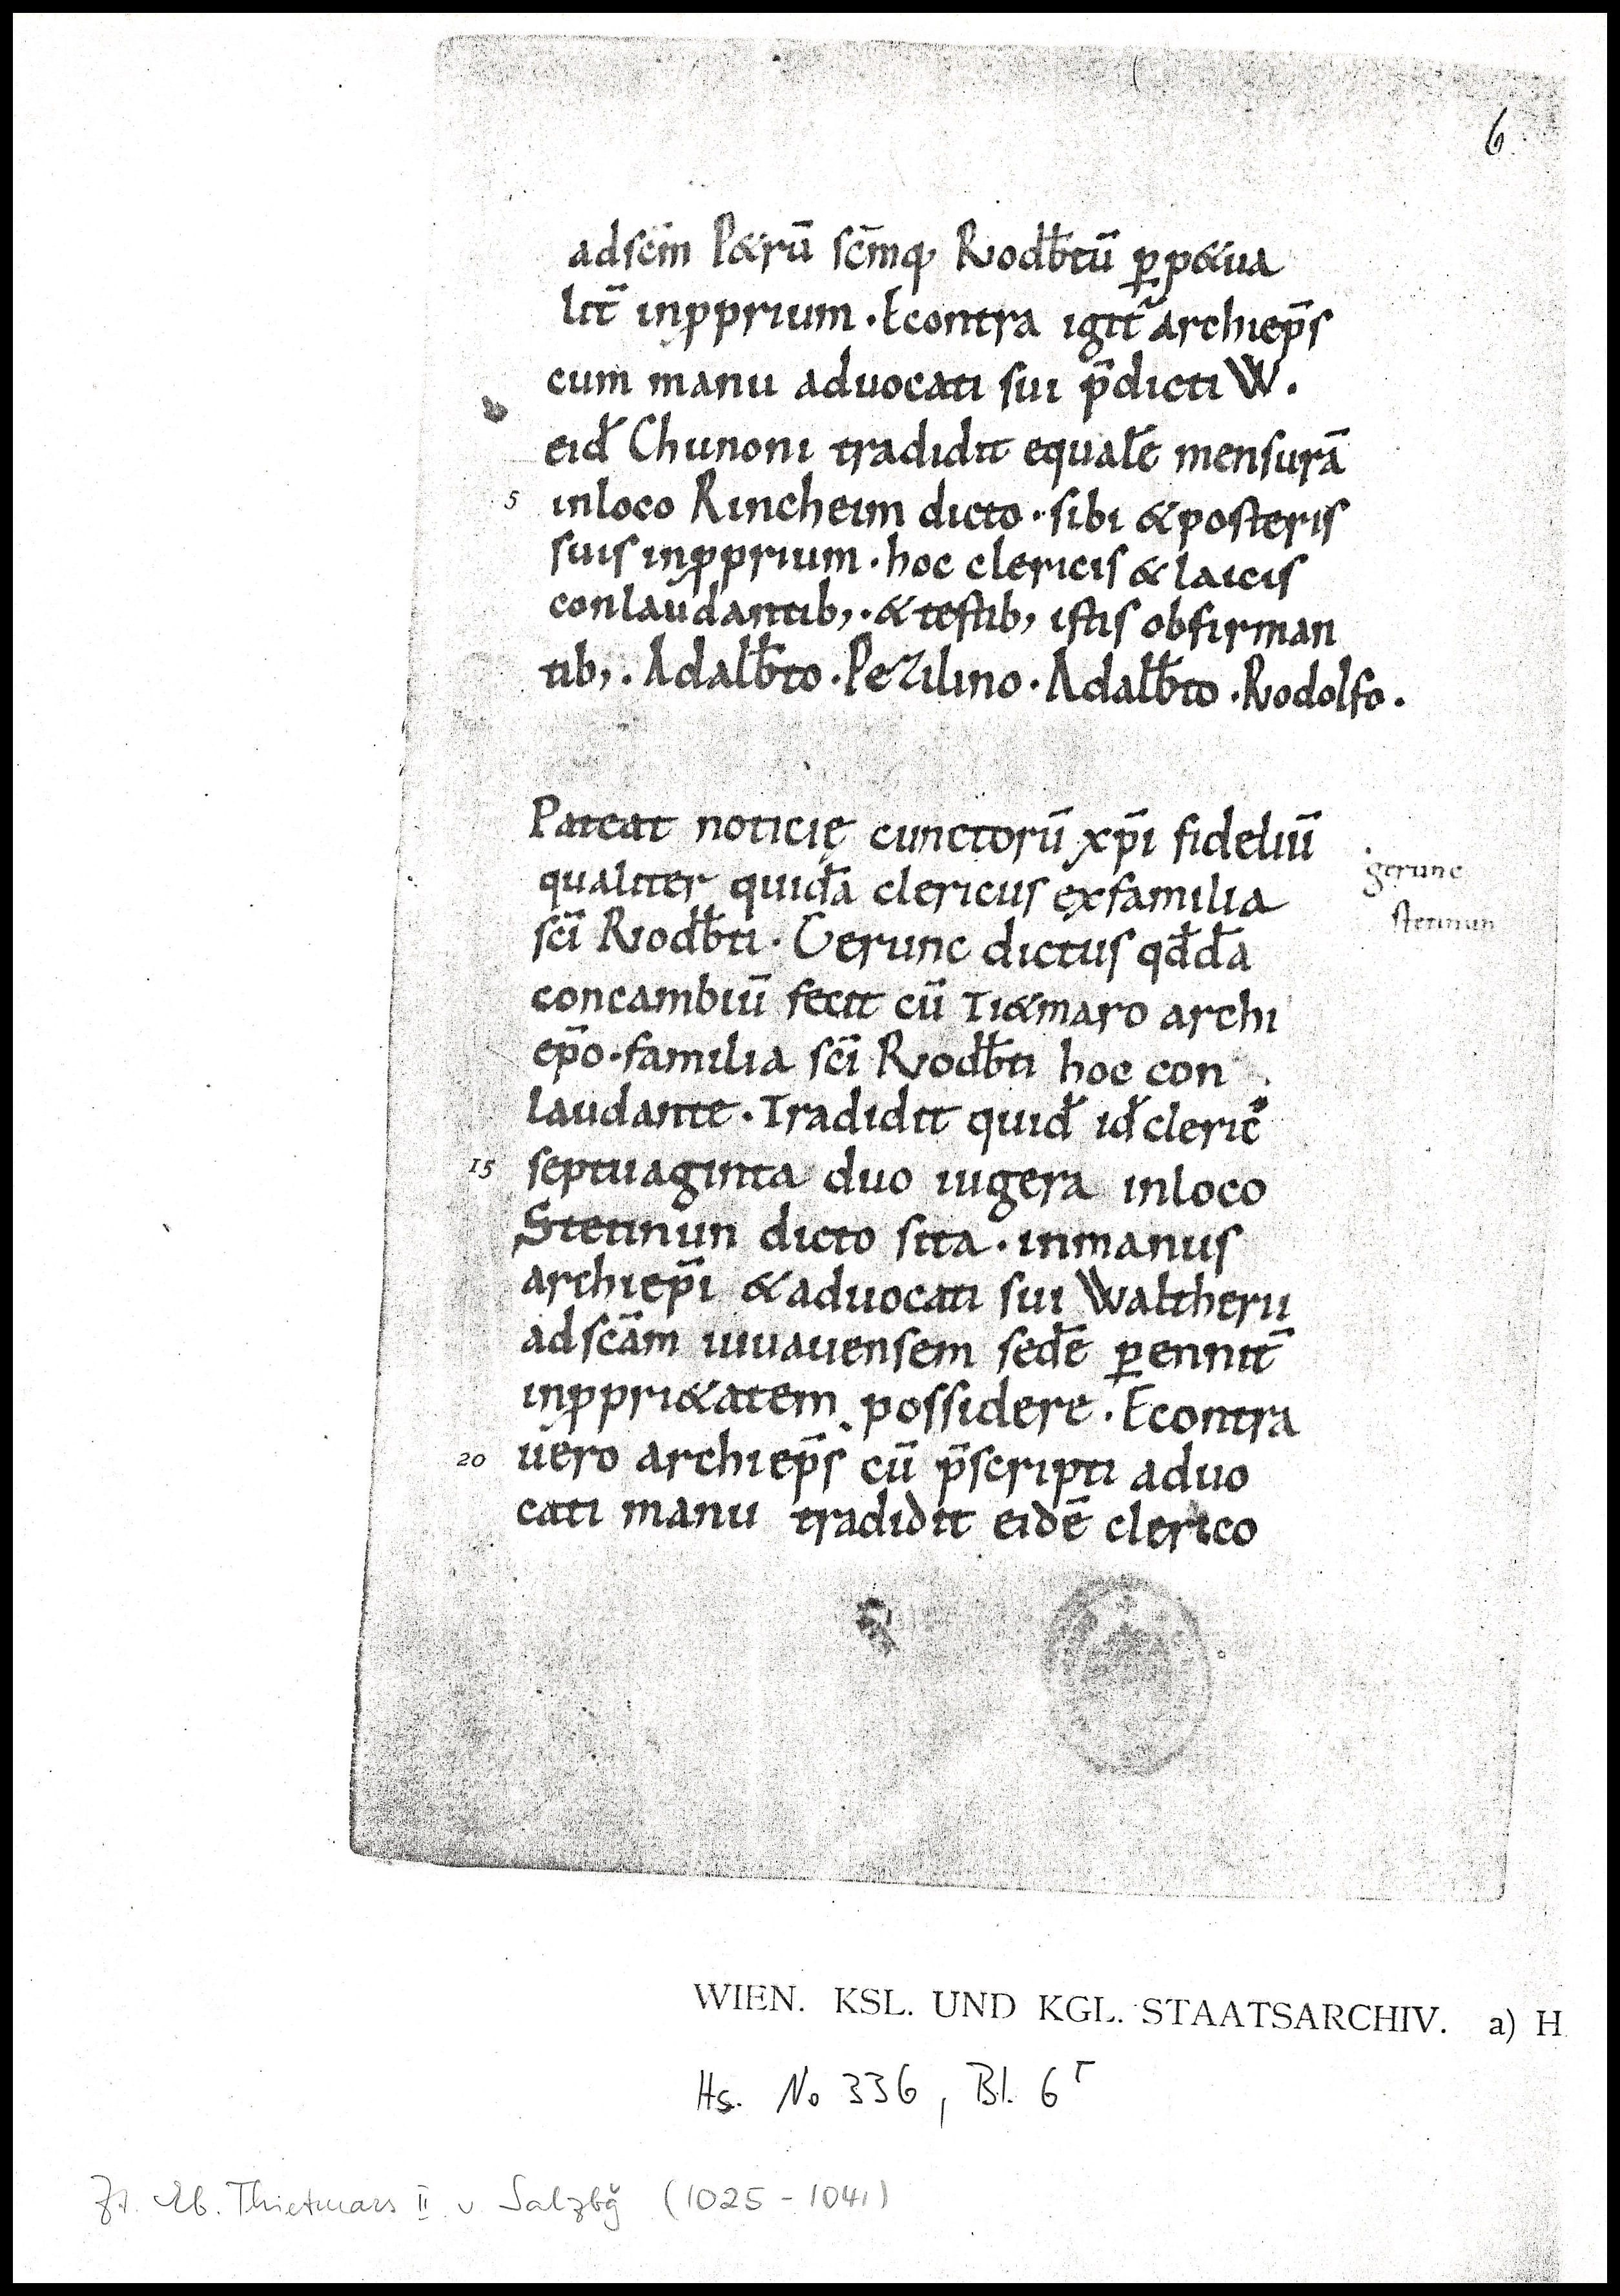 6
adsc̄m P&rū sc̄mq; Rodb̄tū ꝑp&ua
lit̄ inꝓprium · Econtra igit̄ archiep̄s
cum manu aduocati sui p̄dicti W.
eid̄ Chunoni tradidit equalē mensurā
5 inloco Rincheim dicto · sibi & posteris
suis inꝓprium · hoc clericis & laicis
conlaudantib; · & testib; istis obfirman
tib; . Adalb̄to · Pezilino · Adalb̄to · Rodolfo .
Pateat noticię cunctorū xp̄i fideliū
gerunc
qualiter quidā clericus exfamilia
stetinun
sc̄i Rodb̄ti · Gerunc dictus qd̄dā
concambiū fecit cū Ti&maro archi
ep̄o · familia sc̄i Rodb̄ti hoc con
laudante · Tradidit quid̄ id̄ cleric̄
15 septuaginta duo iugera inloco
Stetinun dicto sita · inmanus
archiep̄i & aduocati sui Waltherii
adsc̄am iuuauensem sedē ꝑennit̄
inꝓpri&atem possidere · Econtra
20 uero archiep̄s cū p̄scripti aduo
cati manu tradidit eidē clerico
WIEN. KSL. UND KGL. STAATSARCHIV. a) H
Hs. No 336, Bl. 6r
Zt. Eb. Thietmars II v Salzbg̃ (1025-1041)